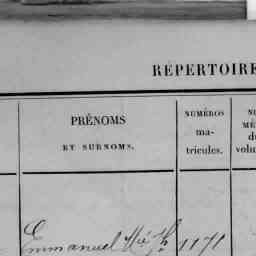 RÉPERTOIRE
PRÉNOMS
ET SURNOMS.
NUMÉROS
ma-
tricules.
Emmanuel 1171